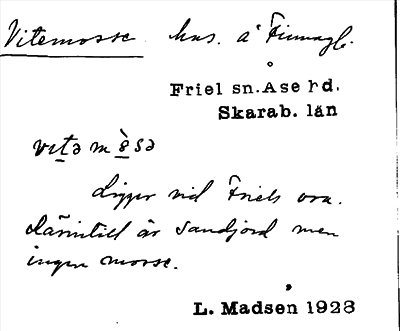 Vitemosse hus. å Finnagb.
Friel sn. Åse hd.
Skarab. län
vɪtə mòsə
Ligger vid Friels ora.
Därintill är sandjord men
ingen mosse.
L. Madsen 1928